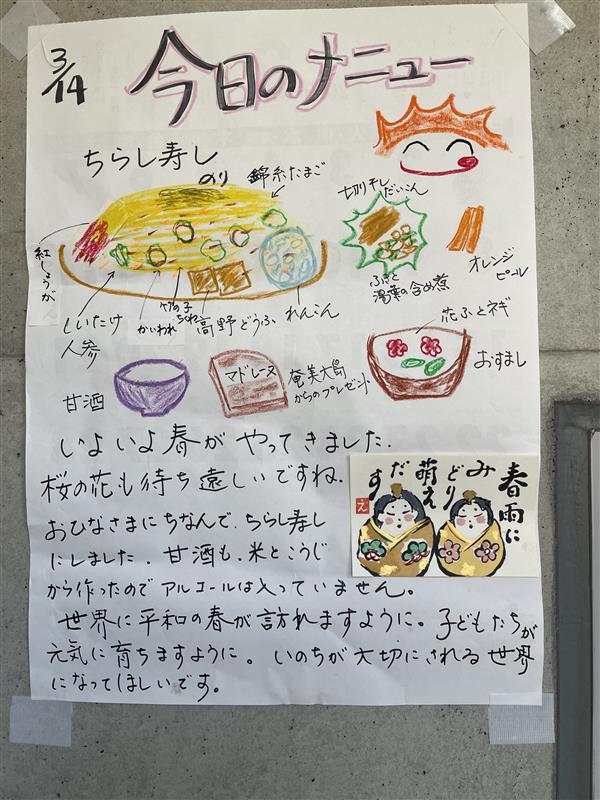 3/14
今日のメニュー
ちらし寿し
のり
錦糸たまご
紅しょうが
しいたけ
人参
かいわれ
竹の子
ちくわ
高野どうふ
れんこん
切り干し
だいこん
ふきと
湯葉の含め煮
オレンジ
ピール
花ふとネギ
おすまし
甘酒
マドレーヌ
奄美大島
からのプレゼント
いよいよ春がやってきました.
桜の花も待ち遠しいですね.
おひなさまにちなんで、ちらし寿し
にしました. 甘酒も、米とこうじ
から作ったのでアルコールは入っていません。
世界に平和の春が訪れますように。子どもたちが
元気に育ちますように。いのちが大切にされる世界
になってほしいです。
春雨に
みどり
萌え
だす
え